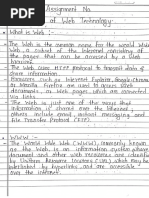 Assignment No.
of Web Technology:-
What is Web :-
The Web is the common name for the World Wide
Web, a subset of the Internet consisting of
the pages that can be accessed by a Web
browser.
The Web uses HTTP protocol to transmit data &
share information.
Browsers such as Internet Explorer, Google Chrome
or Mozilla Firefox are used to access Web
documents, or Web pages, which are connected
via links.
The Web is just one of the ways that
information can be shared over the Internet;
others include email, instant messaging and
File Transfer Protocol (FTP).
WWW :-
The World Wide Web (WWW), commonly known
as the Web, is an information system where
document and other web resources are identified
by Uniform Resource Locators (URLs), which may be
interlinked by hyperlinks, and are accessible
over the Internet.